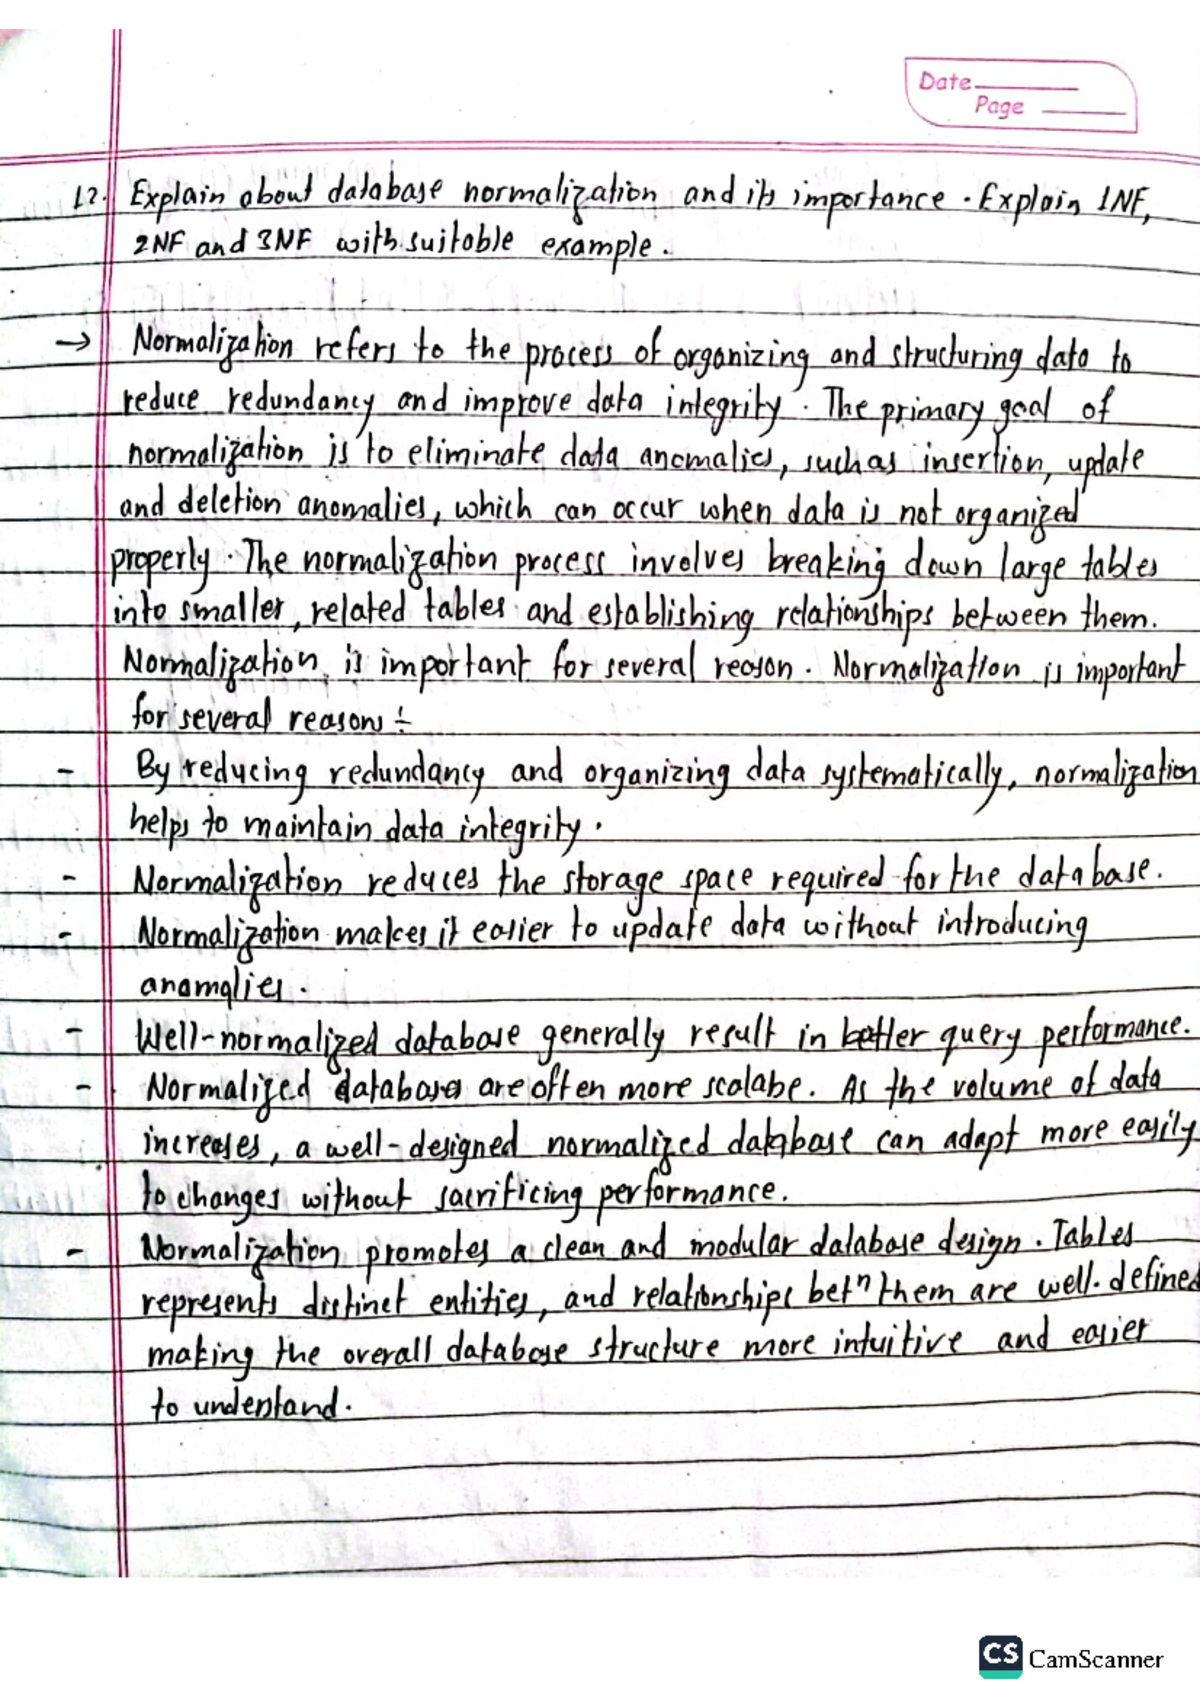 Date
Page
12. Explain about database normalization and its importance. Explain 1NF,
2NF and 3NF with suitable example.
→ Normalization refers to the process of organizing and structuring data to
reduce redundancy and improve data integrity. The primary goal of
normalization is to eliminate data anomalies, such as insertion, update
and deletion anomalies, which can occur when data is not organized
properly. The normalization process involves breaking down large tables
into smaller, related tables and establishing relationships between them.
Normalization is important for several reason. Normalization is important
for several reasons :-
- By reducing redundancy and organizing data systematically, normalization
helps to maintain data integrity.
- Normalization reduces the storage space required for the database.
- Normalization makes it easier to update data without introducing
anomalies.
- Well-normalized database generally result in better query performance.
- Normalized databases are often more scalabe. As the volume of data
increases, a well-designed normalized database can adapt more easily
to changes without sacrificing performance.
- Normalization promotes a clean and modular database design. Tables
represents distinct entities, and relationships betⁿ them are well-defined
making the overall database structure more intuitive and easier
to understand.
CS CamScanner